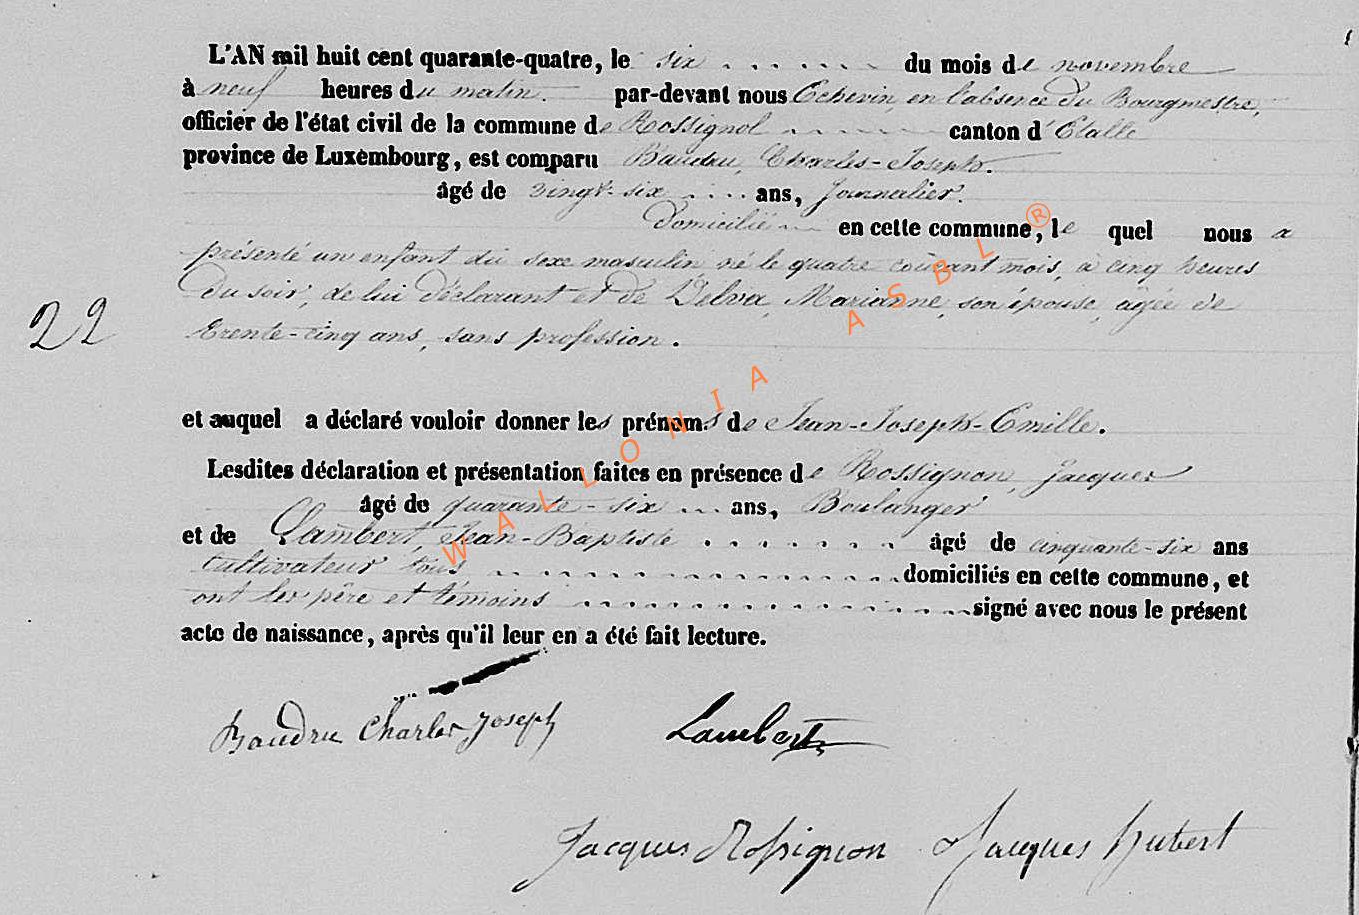 L'AN mil huit cent quarante-quatre, le six du mois de novembre
à neuf heures du matin. par-devant nous Echevin en l'absence du Bourgmestre,
officier de l'état civil de la commune de Rossignol canton d'Etalle
province de Luxembourg, est comparu Baudru, Charles-Joseph.
âgé de vingt-six ans, Journalier.
domicilié en cette commune, le quel nous a
présenté un enfant du sexe masculin, né le quatre courant mois, à cinq heures
du soir, de lui déclarant et de Delva, Marianne, son épouse, agée de
trente-cinq ans, sans profession.
22
et auquel a déclaré vouloir donner les prénoms de Jean-Joseph-Emille.
Lesdites déclaration et présentation faites en présence de Rossignon, Jacques
âgé de quarante-six ans, Boulanger
et de Lambert, Jean-Baptiste âgé de cinquante-six ans
Cultivateur tous domiciliés en cette commune, et
ont les père et témoins signé avec nous le présent
acte de naissance, après qu'il leur en a été fait lecture.
Baudru Charles Joseph Lambert
Jacques Rossignon Jacques Hubert
WALLONIA ASBL ®